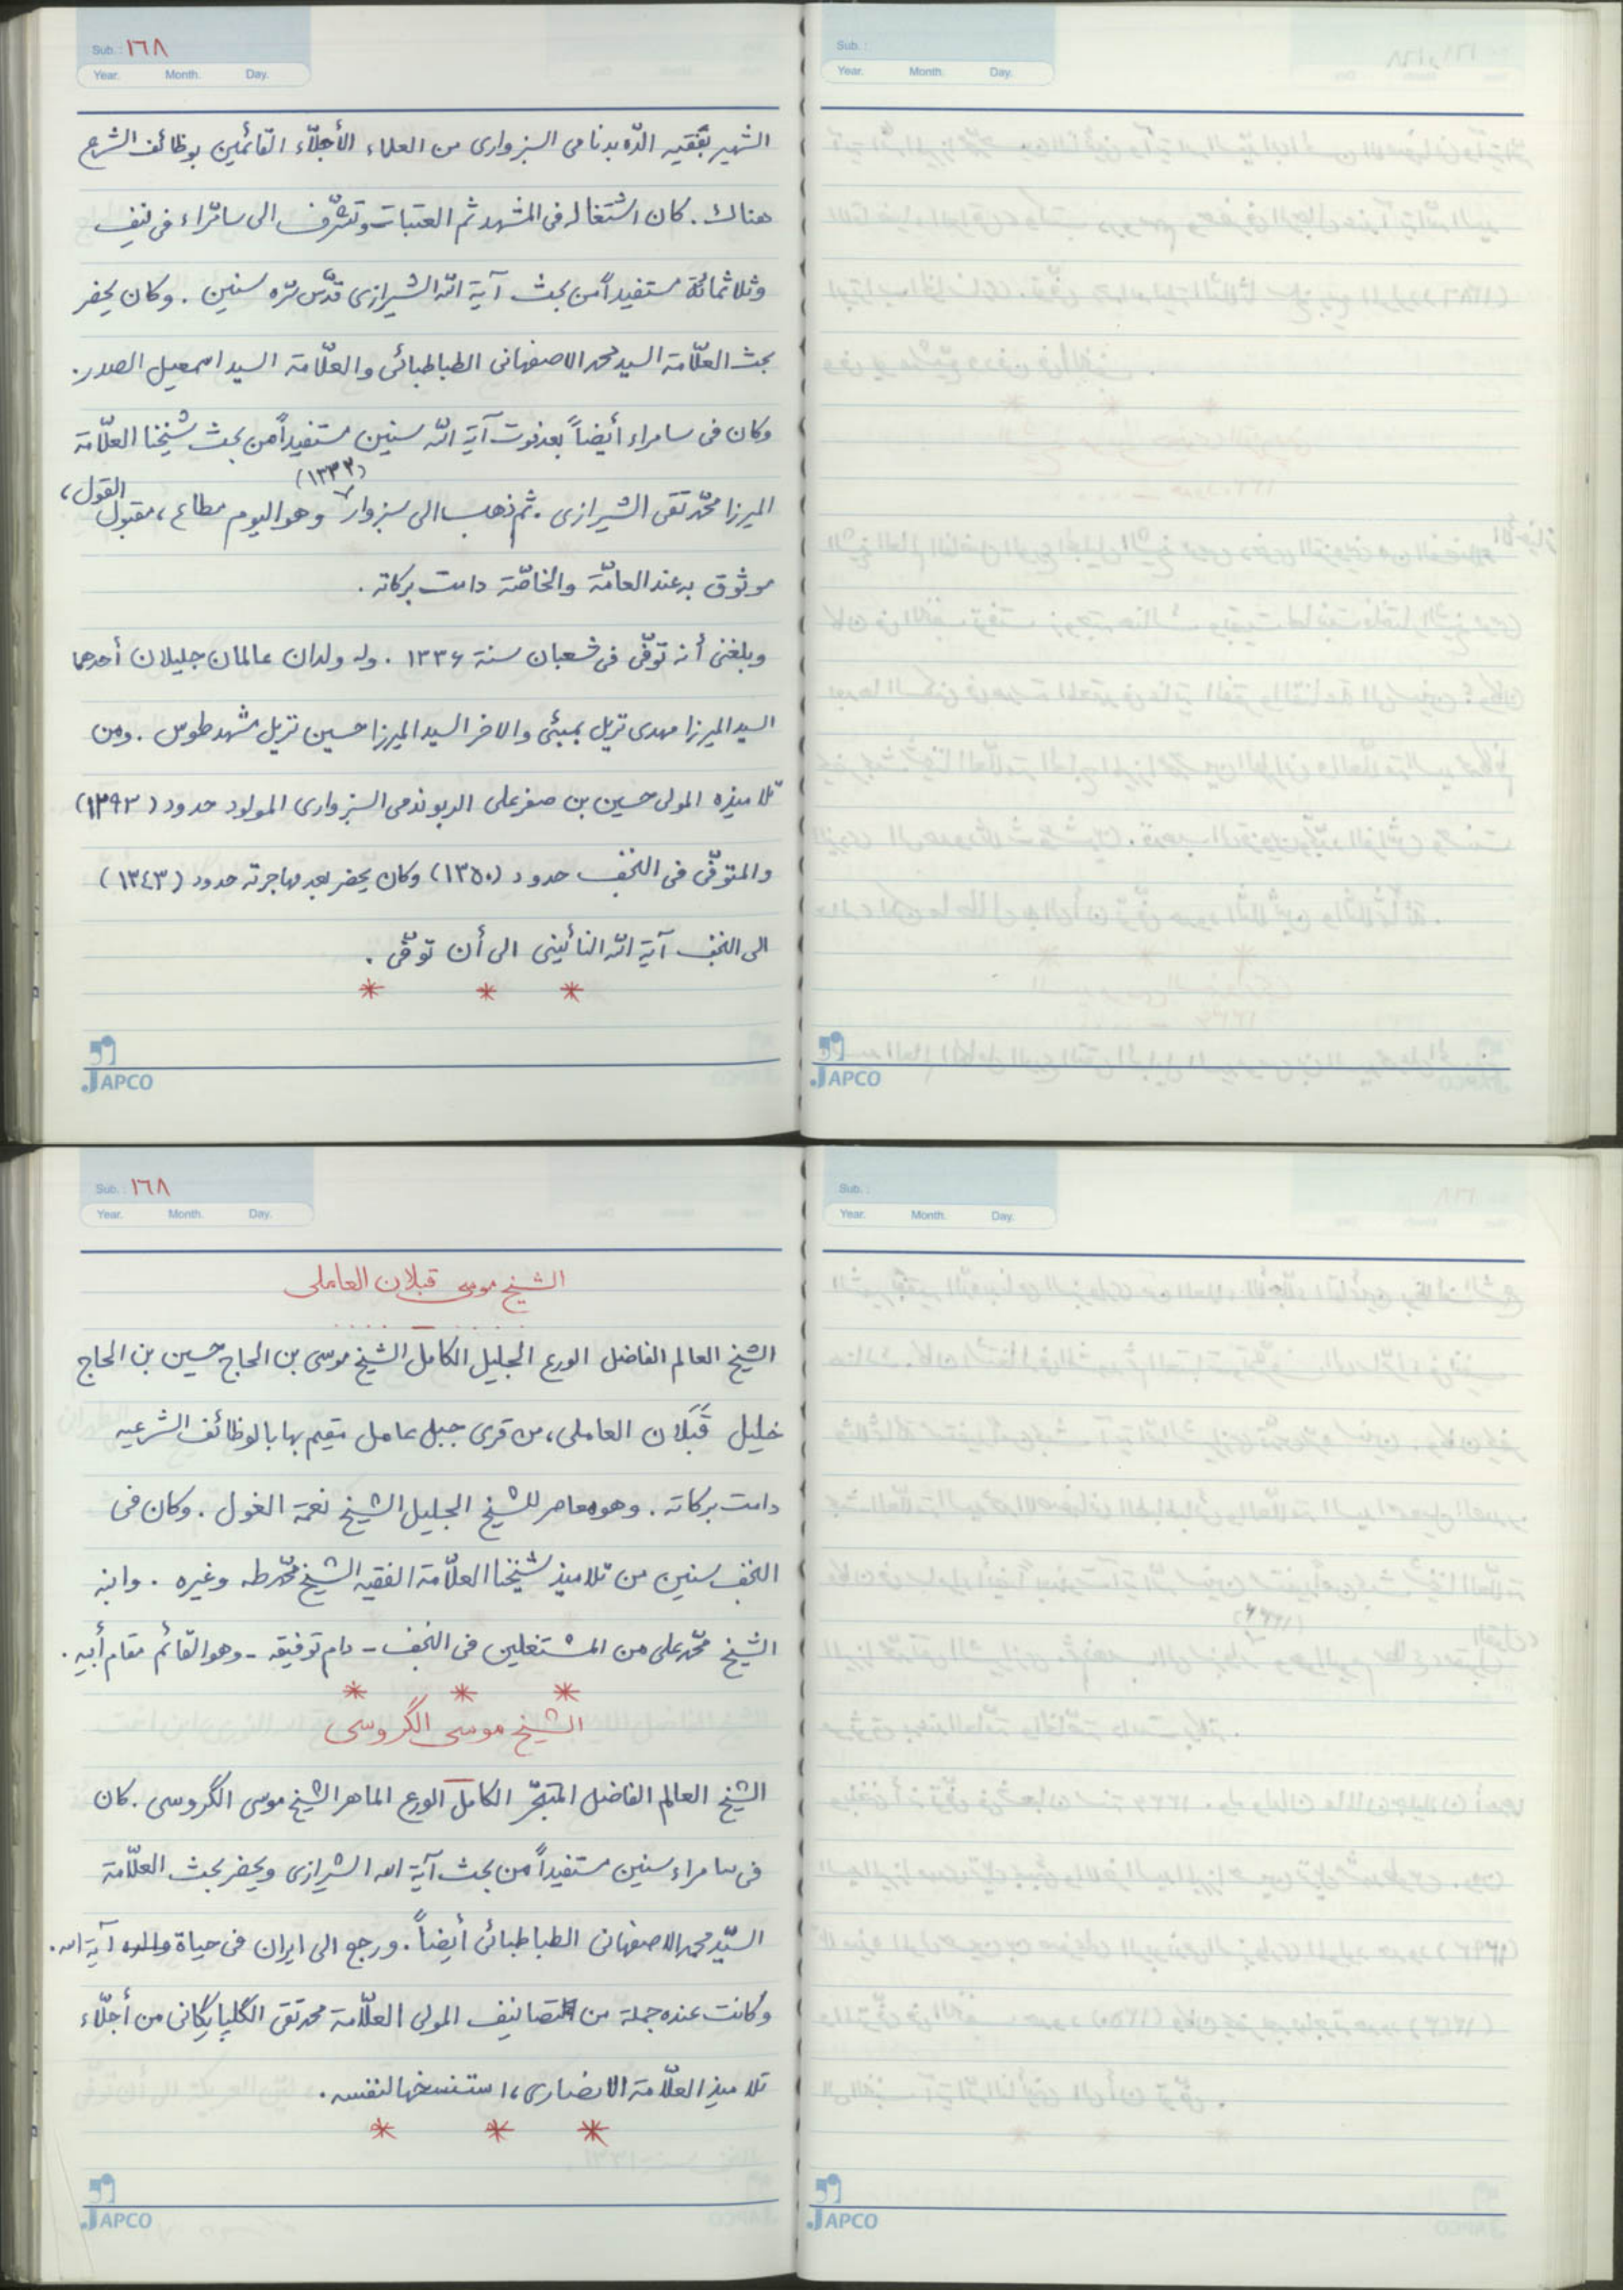 Sub. : ١٦٨
Year. Month. Day.
الشهير بفقيه الدّه بدنامى السبزوارى من العلماء الأجلّاء القائمين بوظائف الشرع
هناك . كان اشتغاله فى المشهد ثم العتبات وتشرّف الى سامرّاء فى نيف
وثلاثمائة مستفيداً من بحث آية اللّه الشيرازى قدّس سرّه سنين . وكان يحضر
بحث العلّامة السيد محمد الاصفهانى الطباطبائى والعلّامة السيد اسمعيل الصدر .
وكان فى سامراء أيضاً بعد فوت آية اللّه سنين مستفيداً من بحث شيخنا العلّامة
الميرزا محمّد تقى الشيرازى . ثم ذهب الى سبزوار (١٣٣٣) وهو اليوم مطاع ، مقبول القول ،
موثوق به عند العامّة والخاصّة دامت بركاته .
وبلغنى أنه توفّى فى شعبان سنة ١٣٣۶ . وله ولدان عالمان جليلان أحدهما
السيد الميرزا مهدى نزيل بمبئى والاخر السيد الميرزا حسين نزيل مشهد طوس . ومن
تلاميذه المولى حسين بن صفر على الريوندى السبزوارى المولود حدود (١٢٩٣)
والمتوفّى فى النجف حدود (١٣٥٠) وكان يحضر بعد مهاجرته حدود (١٣٤٣)
الى النجف آية اللّه النائينى الى أن توفّى .
* * *
JAPCO
Sub. :
Year. Month. Day.
JAPCO
Sub. : ١٦٨
Year. Month. Day.
الشيخ موسى قبلان العاملى
الشيخ العالم الفاضل الورع الجليل الكامل الشيخ موسى بن الحاج حسين بن الحاج
خليل قَبَلَان العاملى ، من قرى جبل عامل مقيم بها بالوظائف الشرعيه
دامت بركاته . وهو معاصر للشيخ الجليل الشيخ نعمة الغول . وكان فى
النجف سنين من تلاميذ شيخنا العلّامة الفقيه الشيخ محمّد طه وغيره . وابنه
الشيخ محمّد على من المشتغلين فى النجف - دام توفيقه - وهو القائم مقام أبيه .
* * *
الشيخ موسى الگروسى
الشيخ العالم الفاضل المتبحّر الكامل الورع الماهر الشيخ موسى الگروسى . كان
فى سامراء سنين مستفيداً من بحث آية الله الشيرازى ويحضر بحث العلّامة
السيّد محمد الاصفهانى الطباطبائى أيضاً . ورجع الى ايران فى حياة آية الله .
وكانت عنده جملة من تصانيف المولى العلّامة محمد تقى الگلپايگانى من أجلّاء
تلاميذ العلّامة الانصارى ، استنسخها لنفسه .
* * *
JAPCO
Sub. :
Year. Month. Day.
JAPCO